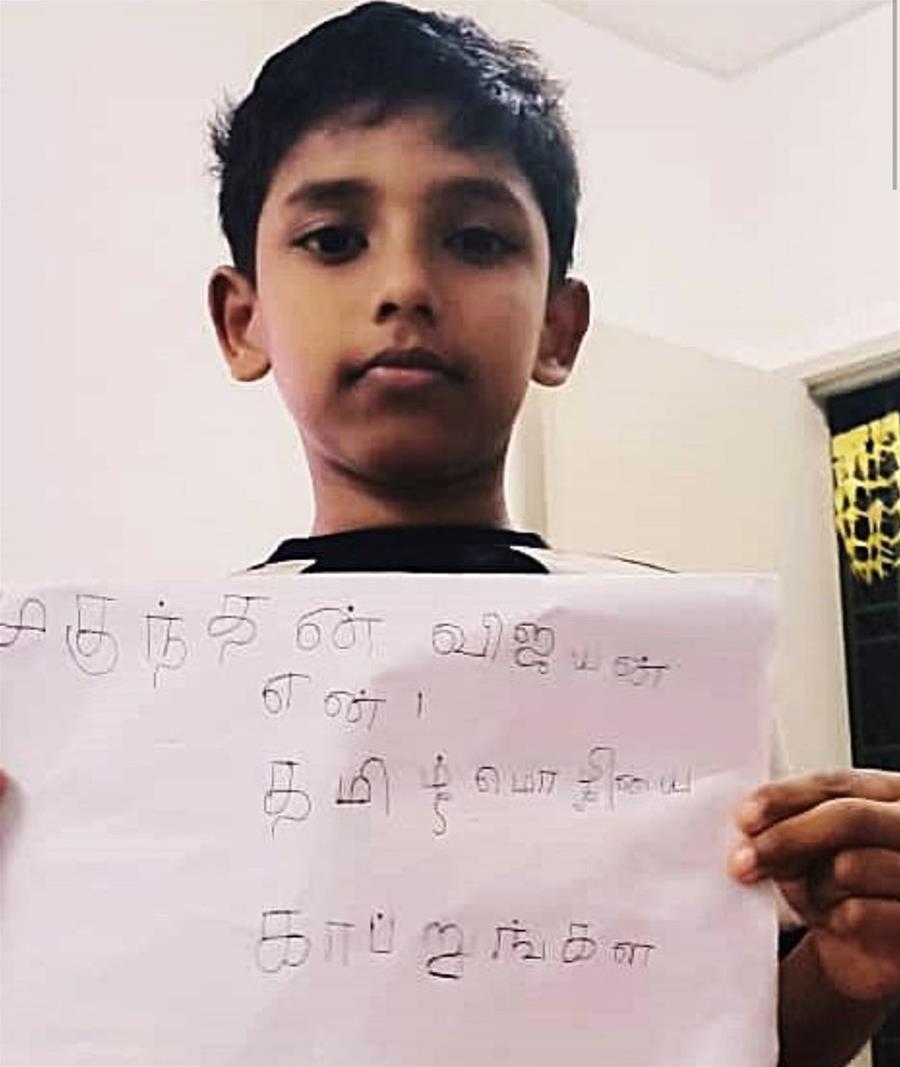 குந்தன் விஜயன்
என்
தமிழ் மொழியை
காப்றுங்கள